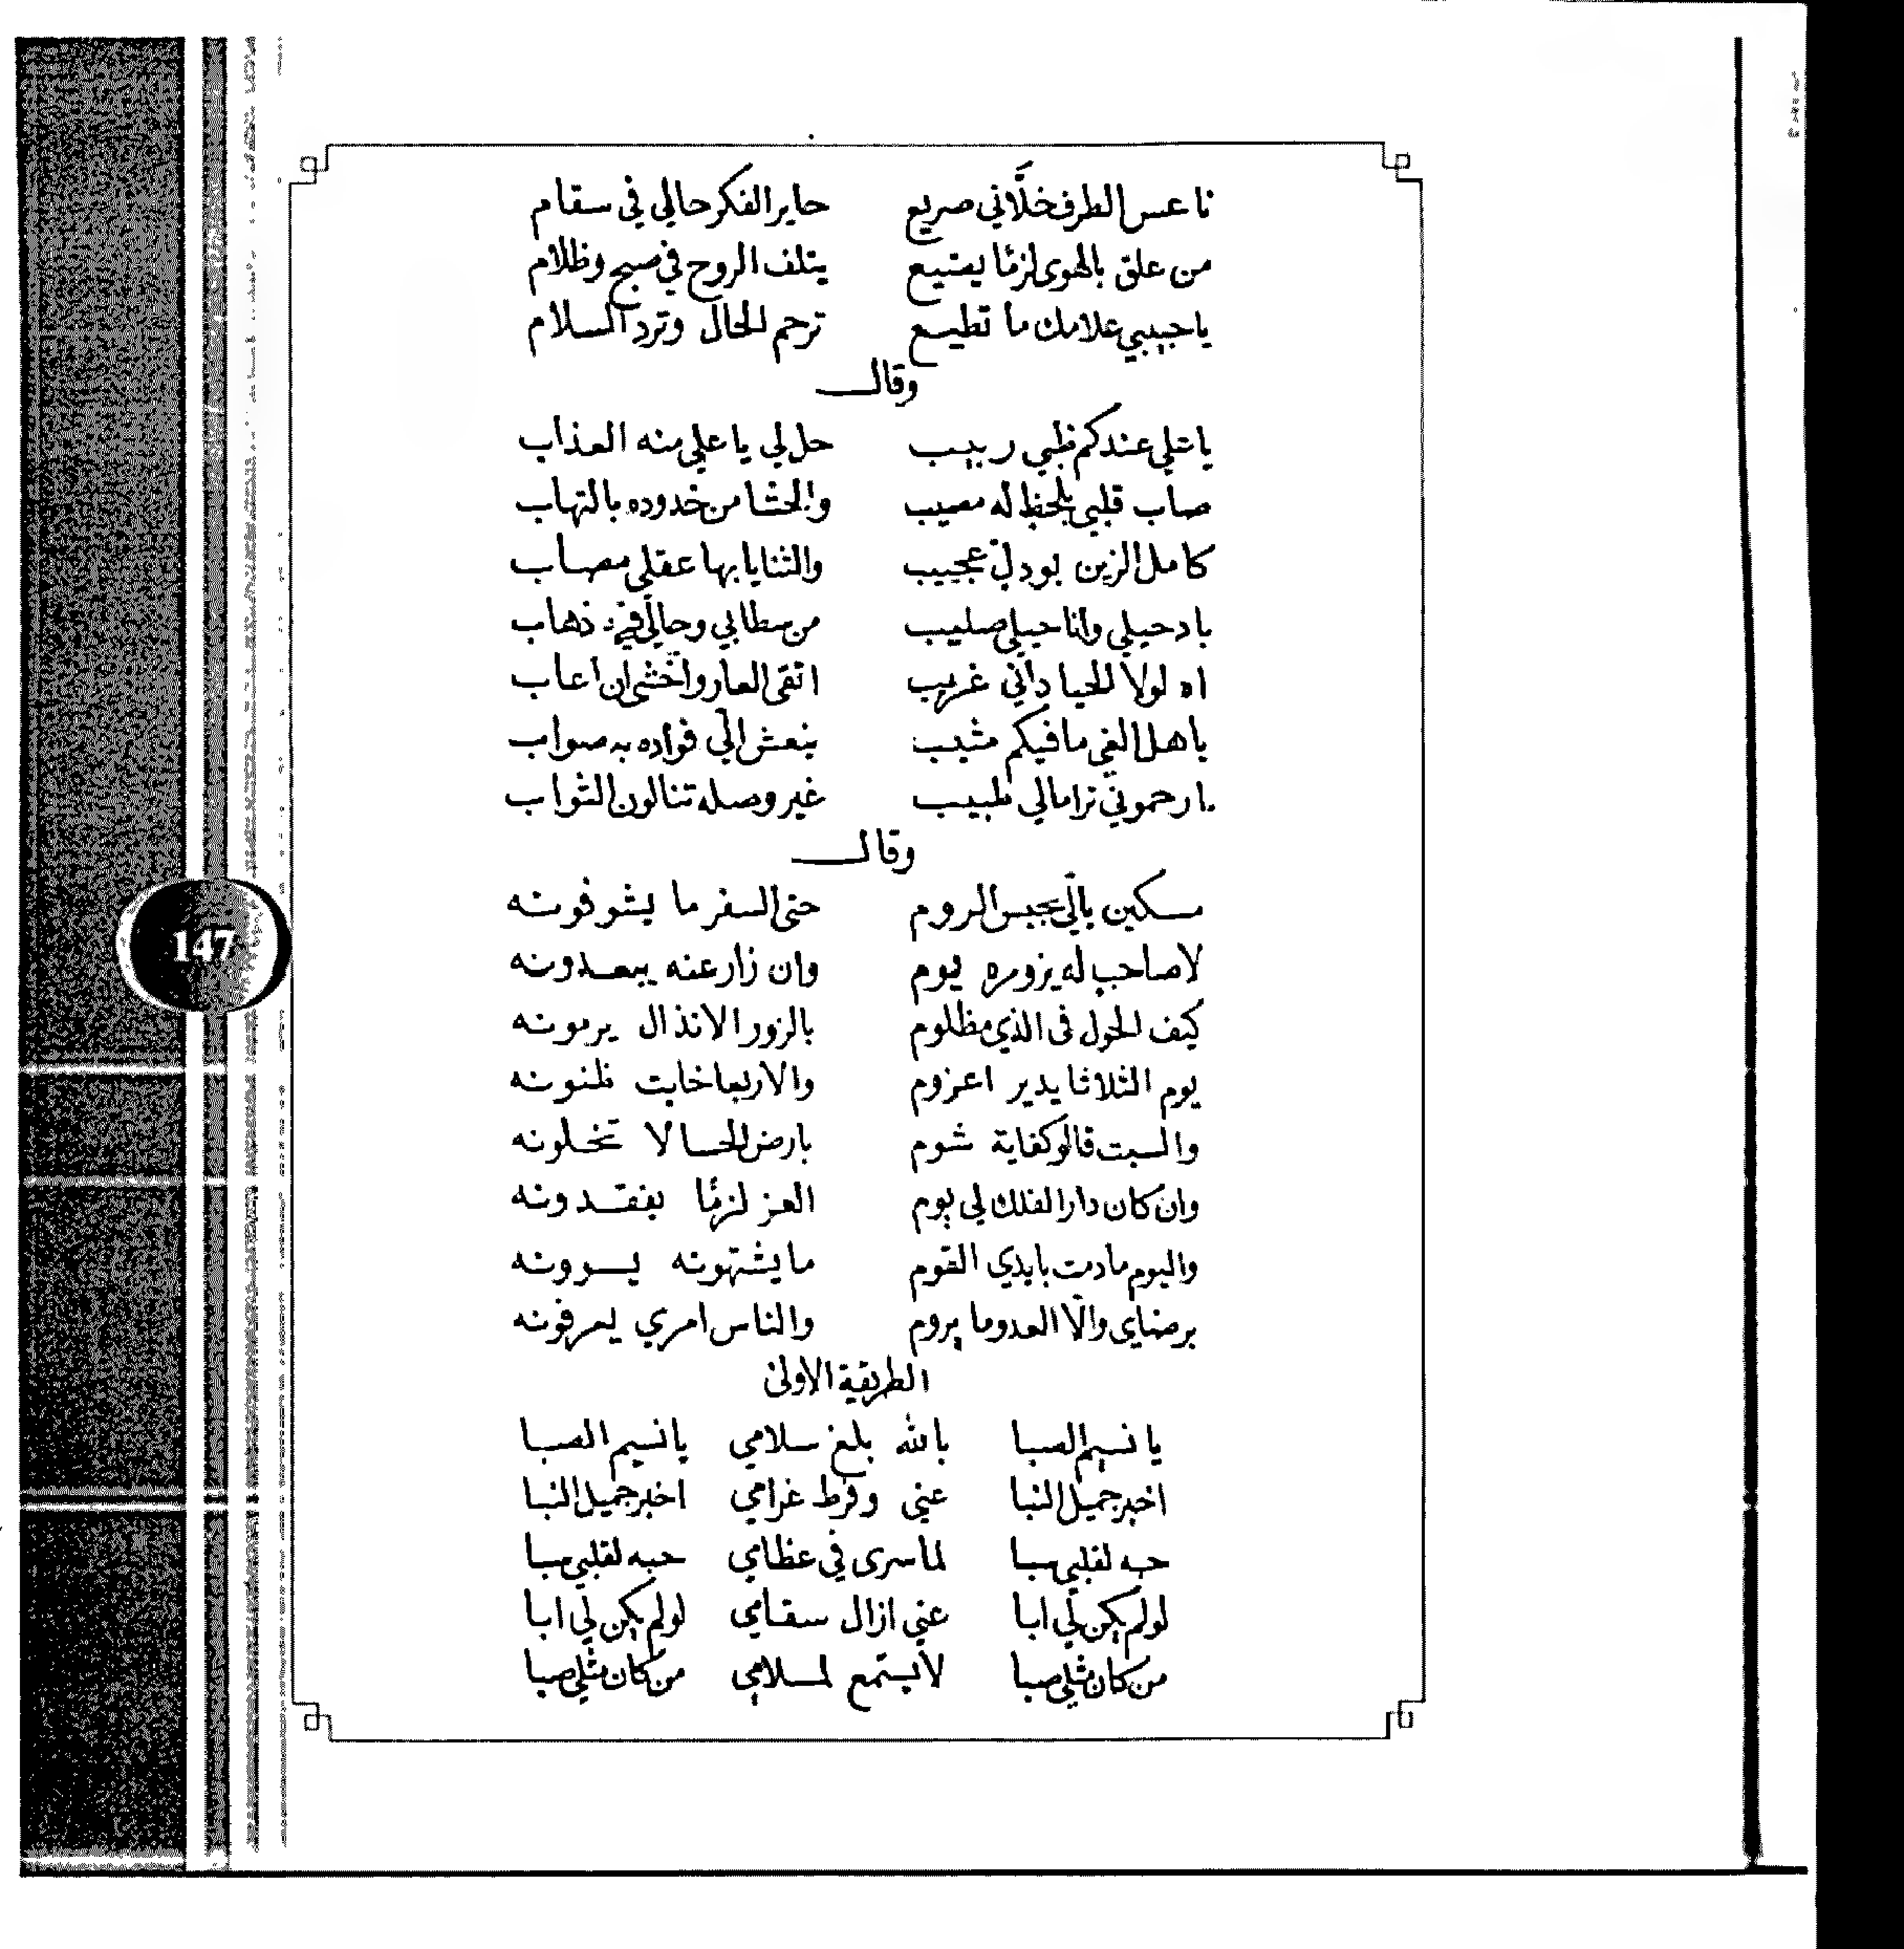 ناعس الطرف خلَّاني صريع حاير الفكر حالي في سقام
من علق بالهوى لزمًا يصتيع يتلف الروح في صبح وظلام
يا حبيبي علامك ما تطيع ترحم الحال وترد السلام
وقال
يا علي عندكم ظبي ربيب حل لي يا علي منه العذاب
صاب قلبي بلحظ له مصيب والحشا من خدوده بالتهاب
كامل الزين بو دلٍ عجيب والثنايا بها عقلي مصاب
باد حيلي وانا حيلي صليب من سطا بي وحالي في ذهاب
اه لولا الحيا داني غريب اتقى العار واخشى ان اعاب
ياهل الغي ما فيكم مثيب ينعش الي فواده به صواب
ارحموني ترا مالي طبيب غير وصله تنالون الثواب
وقال
مسكين يالّي بحبس الروم حتى السفر ما يشوفونه
لا صاحب له يزوره يوم وان زار عنه يبعدونه
كيف الحول في الذي مظلوم بالزور الانذال يرمونه
يوم الثلاثا يدير اعزوم والاربعا خابت ظنونه
والسبت قالو كفاية شوم بارض الحسا لا تخلونه
وان كان دار الفلك لي يوم العز لزمًا يفقدونه
واليوم مادمت بايدي القوم ما يشتهونه يسوونه
برضاي والّا العدو ما يروم والناس امري يعرفونه
الطريقة الاولى
يا نسيم الصبا بالله بلغ سلامي يا نسيم الصبا
اخبر جميل النبا عني وفرط غرامي اخبر جميل النبا
حبه لقلبي سبا لما سرى في عظامي حبه لقلبي سبا
لو لم يكن لي ابا عني ازال سقامي لو لم يكن لي ابا
من كان مثلي صبا لا يستمع لملامي من كان مثلي صبا
147